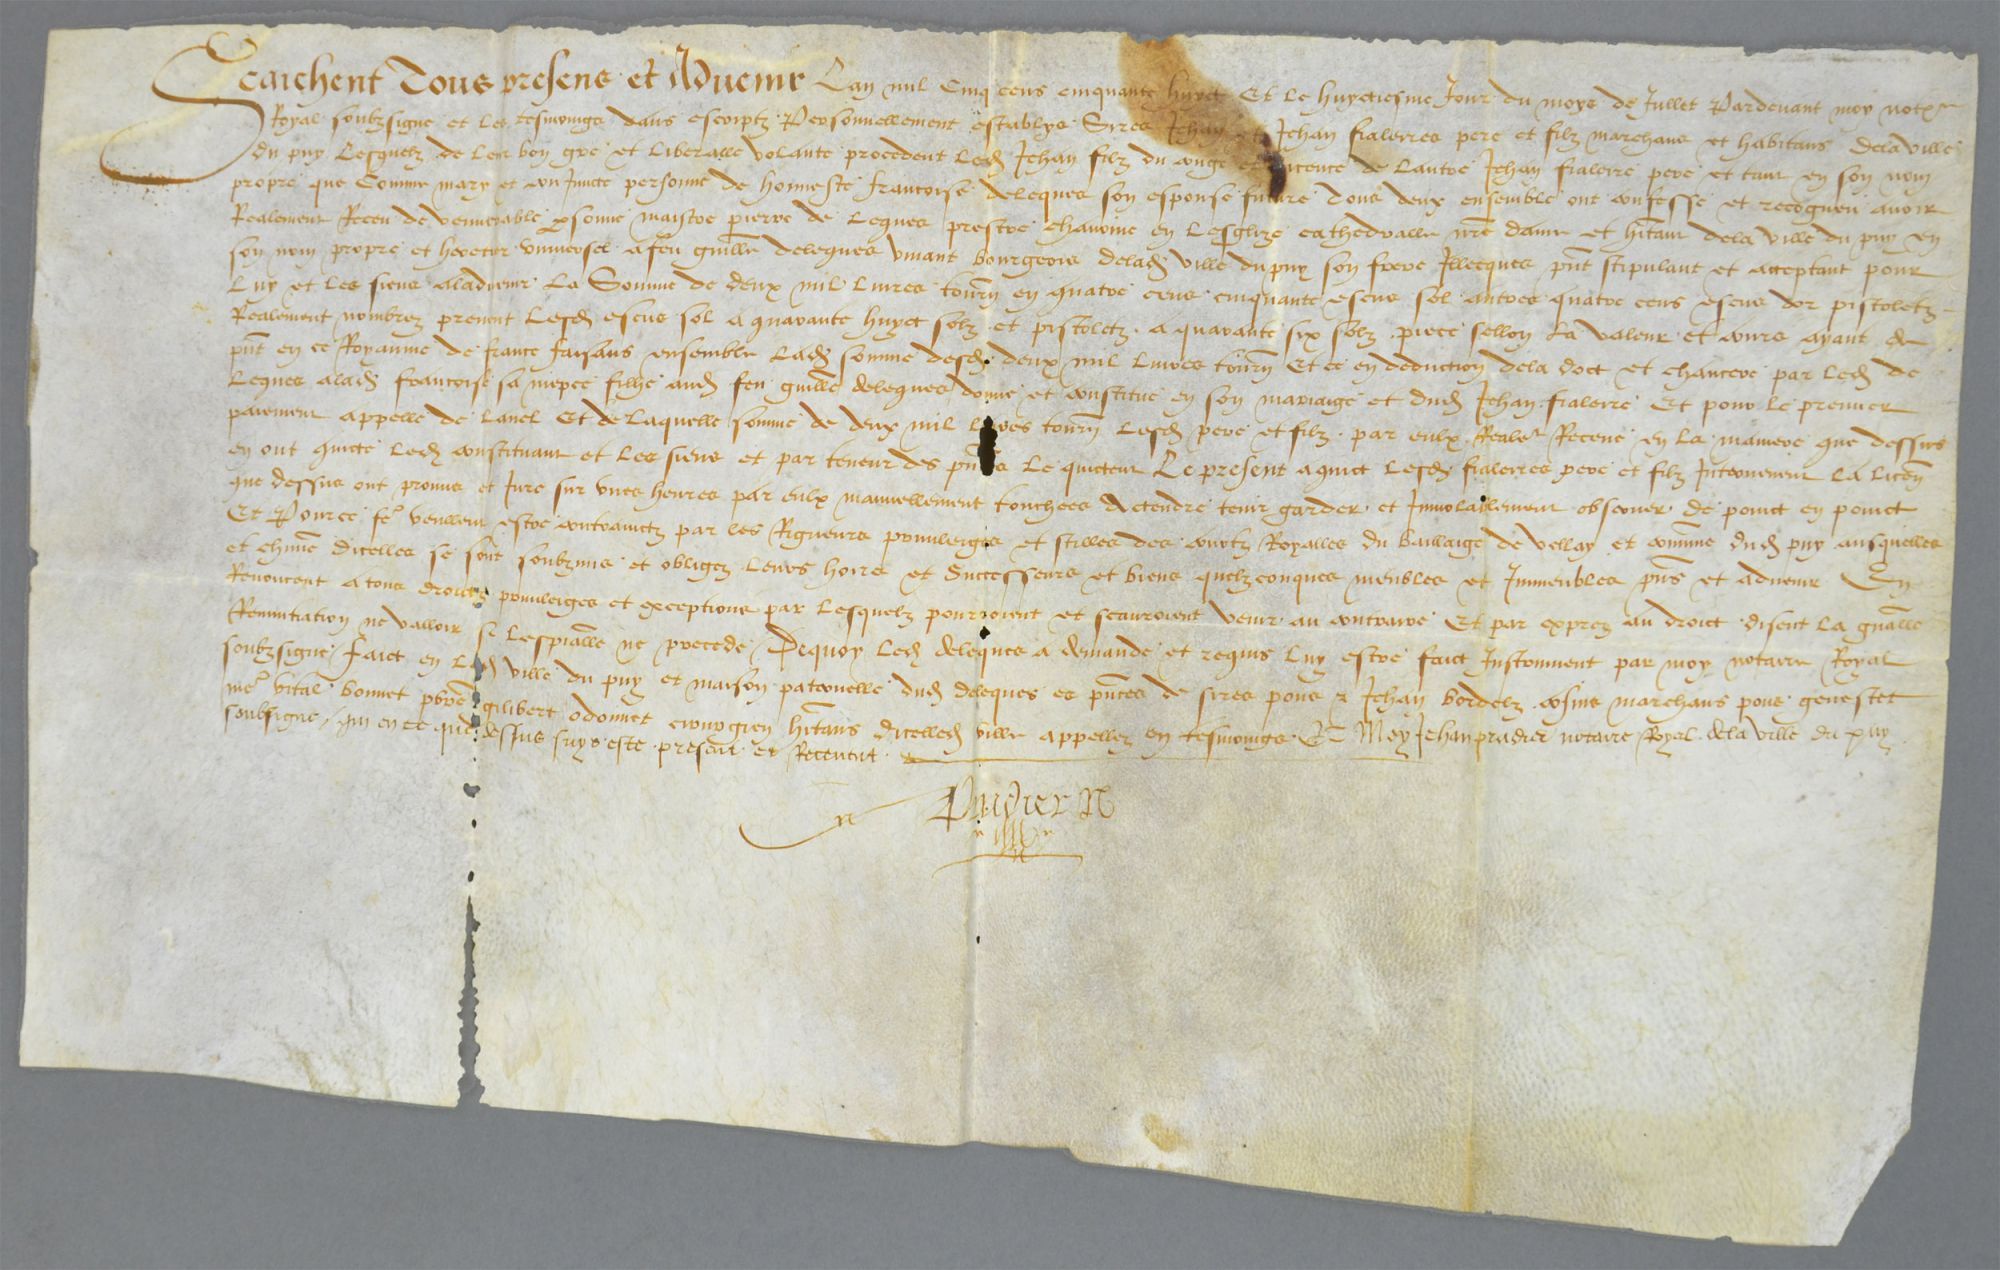 Scaichent Tous presens et Advenir Lan mil Cinq cens cinquante huyct Et Le huyctiesme Jour du moys de Jullet Pardevant moy not.re
Royal soubzsigne et les tesmoings dans escriptz Personnellement establys Sires Jehan et Jehan fialeires pere et filz marchans et habitans dela ville
du puy Lesquelz de leur bon gre et liberalle volante procedent Led. Jehan filz du conge et licence de lautre Jehan fialeire pere et tant en son nom
propre que Comme mary et conjuncte personne de honneste francoise deleques son espouse future Tous deux ensemble ont confesse et recogneu avoir
Realement Receu de vennerable personne maistre pierre de Leques prestre chanoine en Lesglize cathedralle nre dame et hitant dela ville du puy en
son nom propre et heretier unniversel a feu guillme deleques vivant bourgeois delad. ville du puy son frere Illecques pnt stipulant et acceptant pour
Luy et les siens aladvenir La Somme de deux mil Livres tourn en quatre cens cinquante escus sol autres quatre cens escus dor pistoletz
Realement nombrez prenent Lesd. escus sol a quarante huyct solz et pistoletz a quarante six solz piece sellon la valeur et cours ayant de
pnt en ce Royaume de france faisans ensemble Lad. somme desd. deux mil Livres tourn Et ce en deduction dela doct et chancere par Led. de
Leques alad. francoise sa niepce filhe aud. feu guillme deleques donne et constitue en son mariaige et dud. Jehan fialeire Et pour le premier
paiement appelle de Lanel Et de Laquelle somme de deux mil livres tourn Lesd. pere et filz par eulx Realt Receue en la maniere que dessus
en ont quicte Led. constituant et les siens et par teneur des pntes Le quictent Le present aquict Lesd. fialeires pere et filz Intervenent La licen
que dessus ont promis et Jure sur unes heures par eulx manuellement touchees Actendre tenir garder et Inviolablement observer de poinct en poinct
Et Pource fe veullent estre contrainctz par les Rigueurs privileiges et stilles des courtz Royalles du bailliaige de vellay et commune dud. puy ausquelles
et chune dicelles se sont soubzmis et obligez Leurs hoirs et Successeurs et biens quelzconques meubles et Immeubles pns et advenir En
Renoncent a tous droictz privileiges et exceptions par Lesquelz pourroient et scauroient venir au contraire Et par exprez au droict disent La gnalle
Renuntiation ne valloir se Lespialle ne precede Dequoy Led. deleques a demande et requis Luy estre faict Instrument par moy notaire Royal
soubzsigne Faict en Lad. ville du puy et maison paternelle dud. deleques es pnces de sires pons & Jehan bordelz cosins marchans pons genestet
me vital bonnet pbre gilibert odonnet cirurgien hitans dicelled. ville appellez en tesmoings Et Moy Jehan pradier notaire Royal dela ville du puy
soubsigne qui en ce que dessus suys este present et Recevent
Pradier N